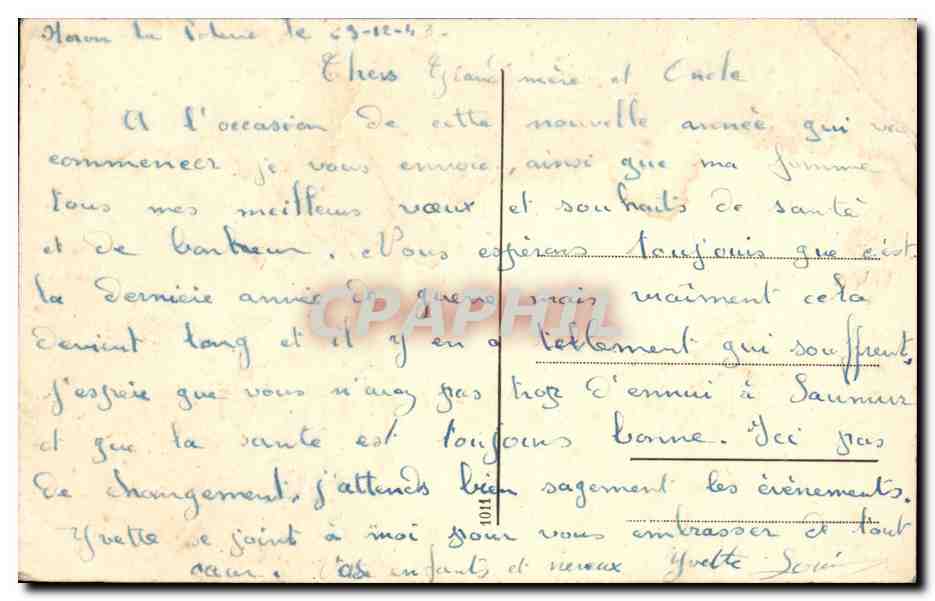 le 29-12-43
Chers Grand'mère et Oncle
A l'occasion de cette nouvelle année qui va
commencer je vous envoie, ainsi que ma femme
tous mes meilleurs vœux et souhaits de santé
et de bonheur. Nous espérons toujours que c'est
la dernière année de guerre mais vraiment cela
devient long et il y en a tellement qui souffrent.
J'espère que vous n'avez pas trop d'ennui à Saumur
et que la santé est toujours bonne. Ici pas
de changement, j'attends bien sagement les évènements.
Yvette se joint à moi pour vous embrasser de tout
cœur. enfants et neveux Yvette
CPAPHIL
1011